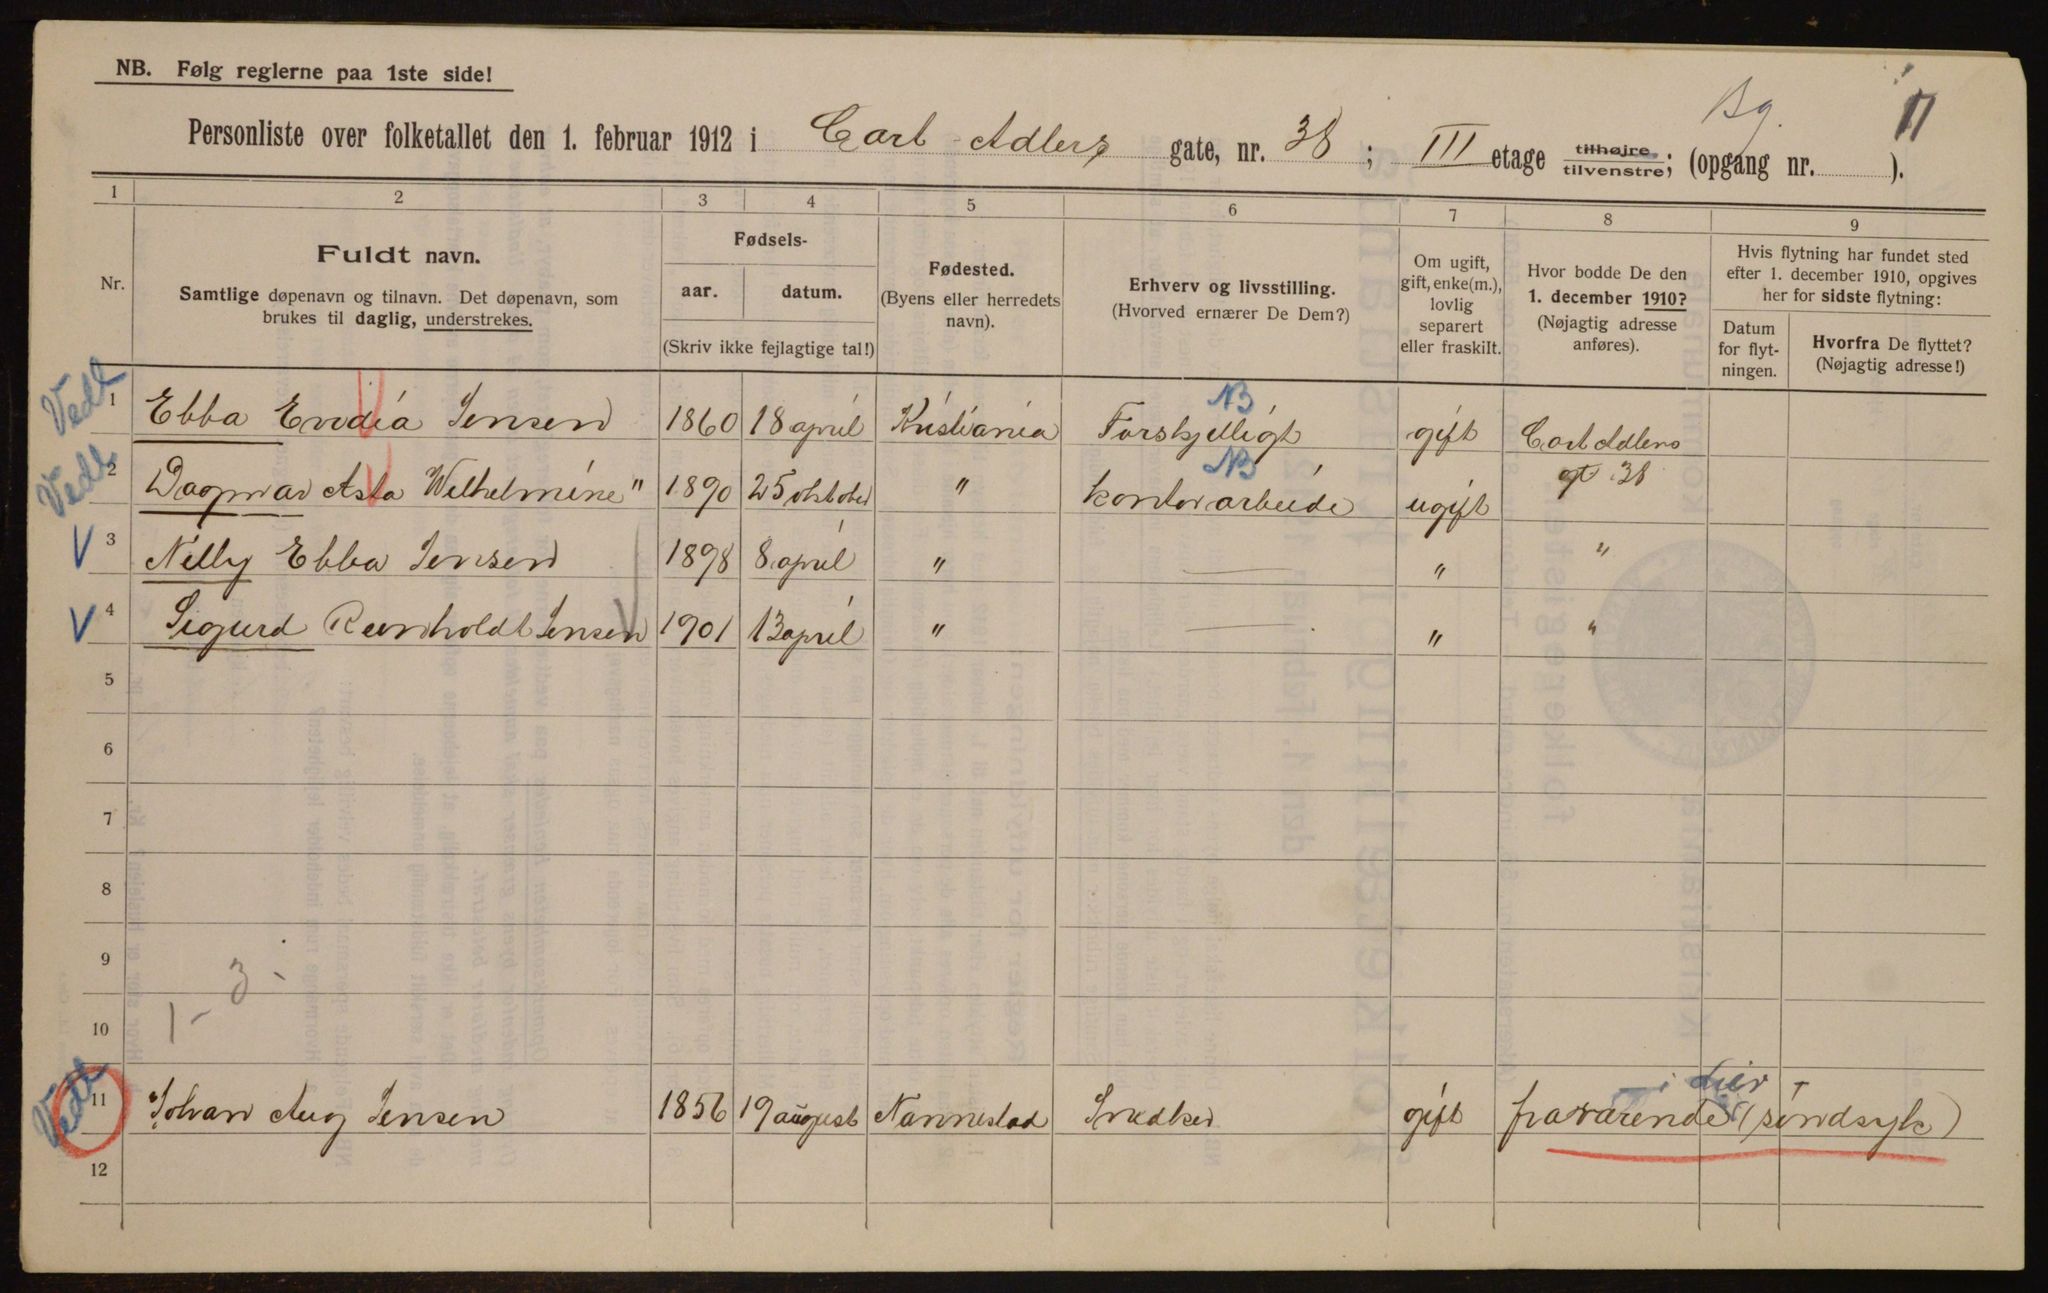 NB. Følg reglerne paa 1ste side!
Bg. 11
Personliste over folketallet den 1. februar 1912 i Carl Adlers gate, nr. 38; III etage tilhøjre tilvenstre; (opgang nr. ).
1 2 3 4 5 6 7 8 9
Nr.
Fuldt navn.
Samtlige døpenavn og tilnavn. Det døpenavn, som
brukes til daglig, understrekes.
Fødsels-
aar. datum.
(Skriv ikke fejlagtige tal!)
Fødested.
(Byens eller herredets
navn).
Erhverv og livsstilling.
(Hvorved ernærer De Dem?)
Om ugift,
gift, enke(m.),
lovlig
separert
eller fraskilt.
Hvor bodde De den
1. december 1910?
(Nøjagtig adresse
anføres).
Hvis flytning har fundet sted
efter 1. december 1910, opgives
her for sidste flytning:
Datum
for flyt-
ningen.
Hvorfra De flyttet?
(Nøjagtig adresse!)
Vedl NB
1 Ebba Evodia Jensen 1860 18 april Kristiania Forskjelligt gift Carl Adlers
Vedl NB
2 Dagmar Asta Wilhelmine " 1890 25 oktober " kontorarbeide ugift gt 38
V 3 Nelly Ebba Jensen 1898 8 april " — " "
V 4 Sigurd Reinholdt Jensen 1901 13 april " — " "
5
6
7
8
9
3 -
10 1 -
Vedl i Lier
11 Johan Aug Jensen 1856 19 august Nannestad Snedker gift fraværende (sindsyk)
12